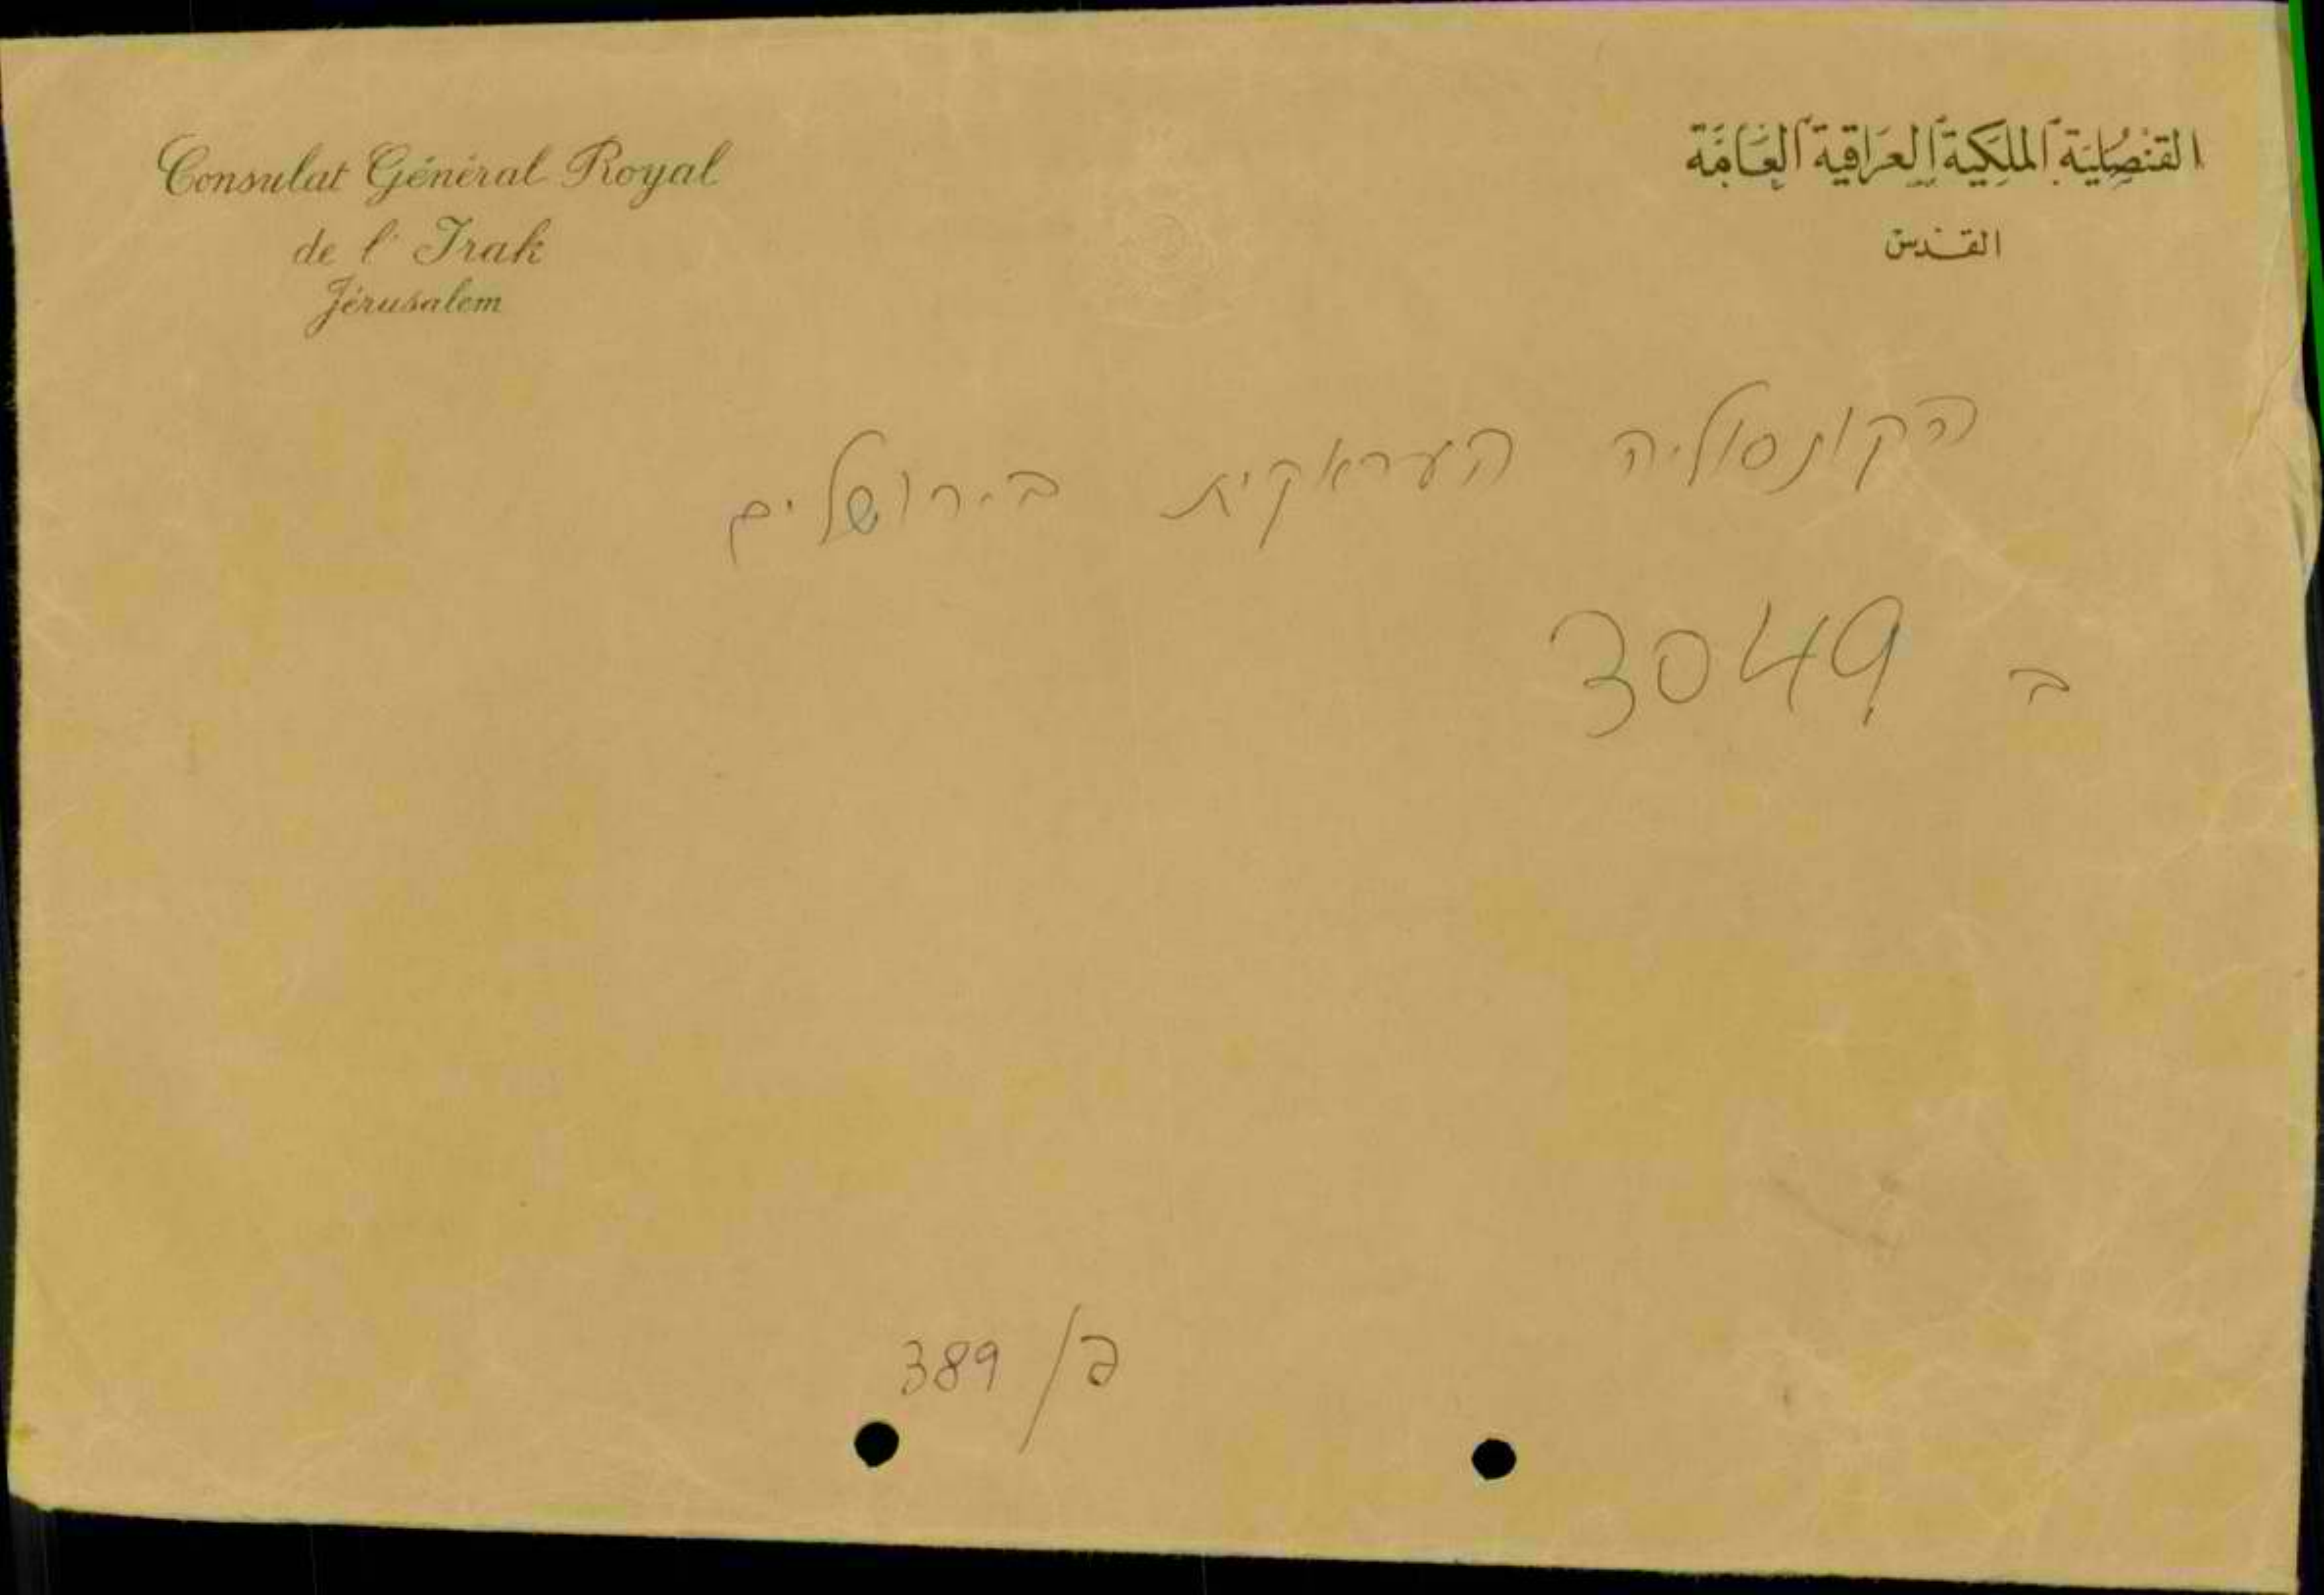 Consulat Général Royal
de l' Irak
Jérusalem
القنصلية الملكية العراقية العامة
القدس
הקונסוליה העראקית בירושלים
ב 3049
פ/ 389